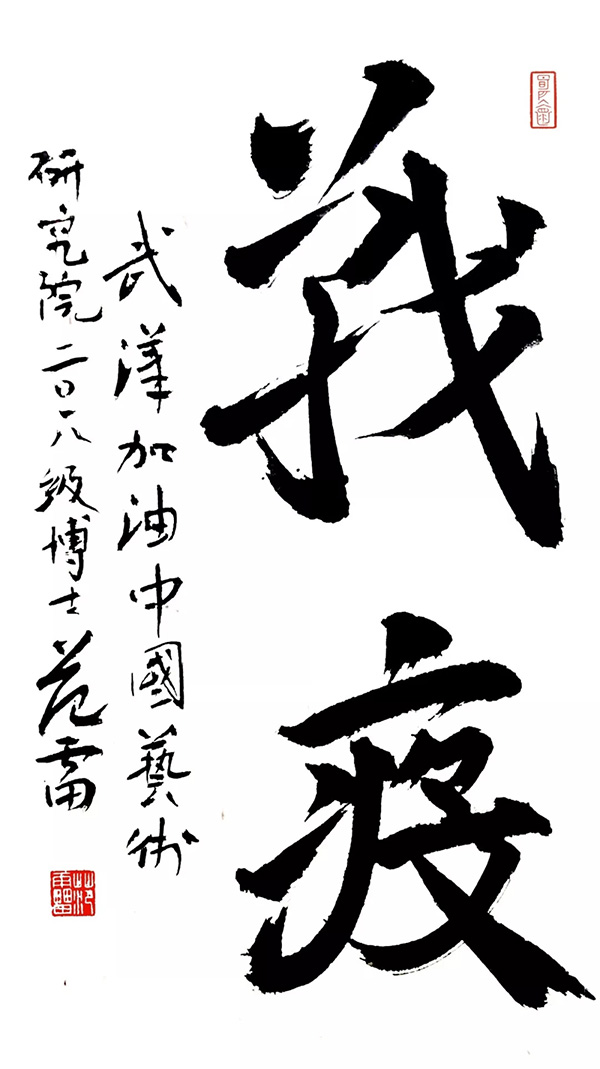 戰疫
武漢加油中國藝術
研究院二〇一八级博士范雷
范雷